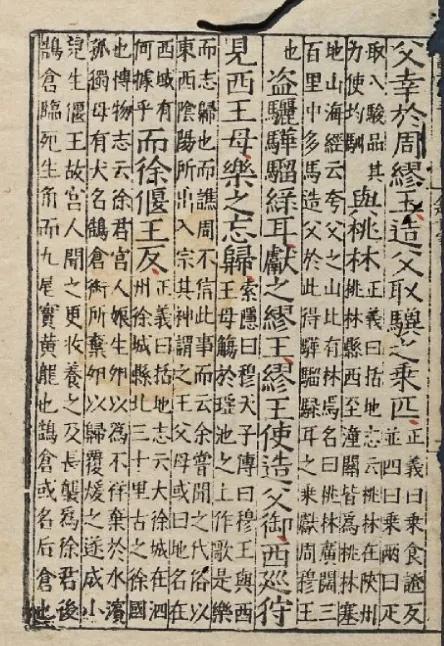 父幸於周繆王造父取驥之乘匹正義曰乘食證反並四曰乘兩曰疋
取八駿品其力使均馴與桃林正義曰括地志云桃林在陜州桃林縣西至潼關皆為桃林塞
地山海經云夸父之山北有林焉名曰桃林廣闊三百里中多馬造父於此得驊騮騄耳之乘獻周穆王
也盜驪驊騮綠耳獻之繆王繆王使造父御西廵狩
見西王母樂之忘歸索隱曰穆天子傳曰穆王與西王母觴於瑤池之上作歌是樂
而志歸也而譙周不信此事而云余嘗聞之代俗以東西陰陽所出入宗其神謂之王父母或曰地名在
西域有何據乎而徐偃王反正義曰括地志云大徐城在泗州徐城縣北三十里古之徐國
也博物志云徐君宮人娠生卵以為不祥棄於水濱孤獨母有犬名鵠倉銜所棄卵以歸覆煖之遂成小
兒生偃王故宮人聞之更收養之及長襲為徐君後鵠倉臨死生角而九尾實黃龍也鵠倉或名后倉也